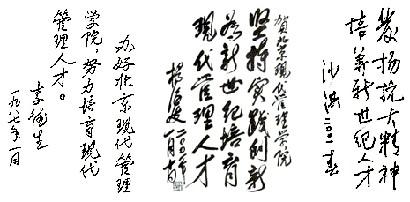 办好北京现代管理
学院，努力培育现代
管理人才。
李德生
一九八七年一月
贺北京现代管理学院
坚持实践创新
为新世纪培育
现代管理人才
二〇〇一年
发扬抗大精神
培养新世纪人才
二〇〇一春